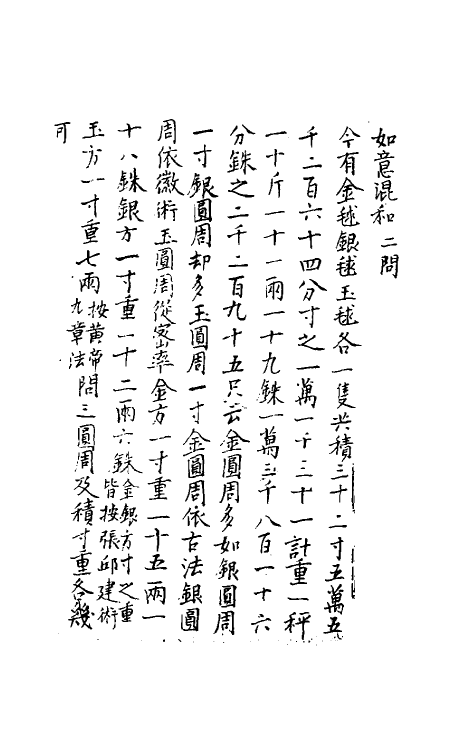 如意混和二問
今有金毬銀毬玉毬各一隻共積三十二寸五萬五
千二百六十四分寸之一萬一千三十一計重一秤
一十斤一十一兩一十九銖一萬三千八百一十六
分銖之二千二百九十五只云金圓周多如銀圓周
一寸銀圓周却多玉圓周一寸金圓周依古法銀圓
周依徽術玉圓周從密率金方一寸重一十五兩一
十八銖銀方一寸重一十二兩六銖金銀方寸之重皆按張邱建術
玉方一寸重七兩按黄帝九章法問三圓周及積寸重各幾
可